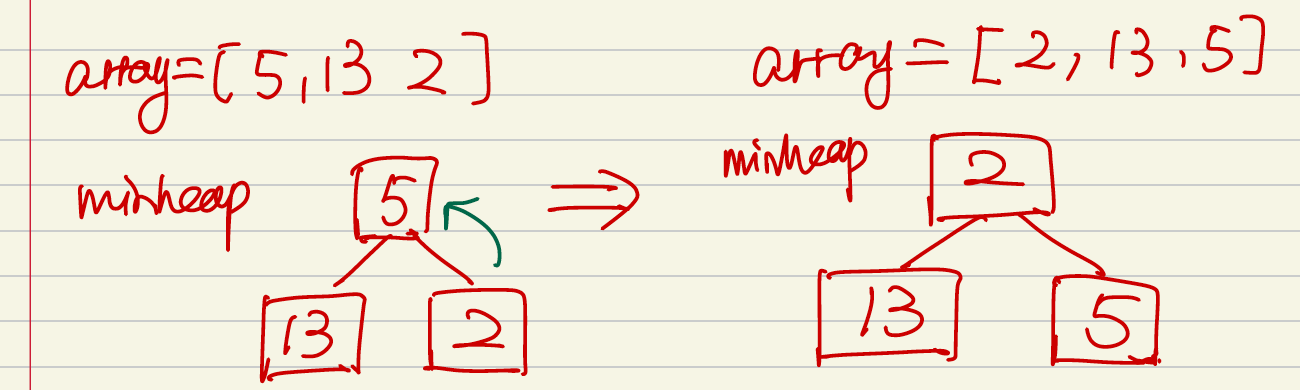 array=[5,13 2]
minheap
5
13 2
array=[2,13,5]
minheap
2
13 5